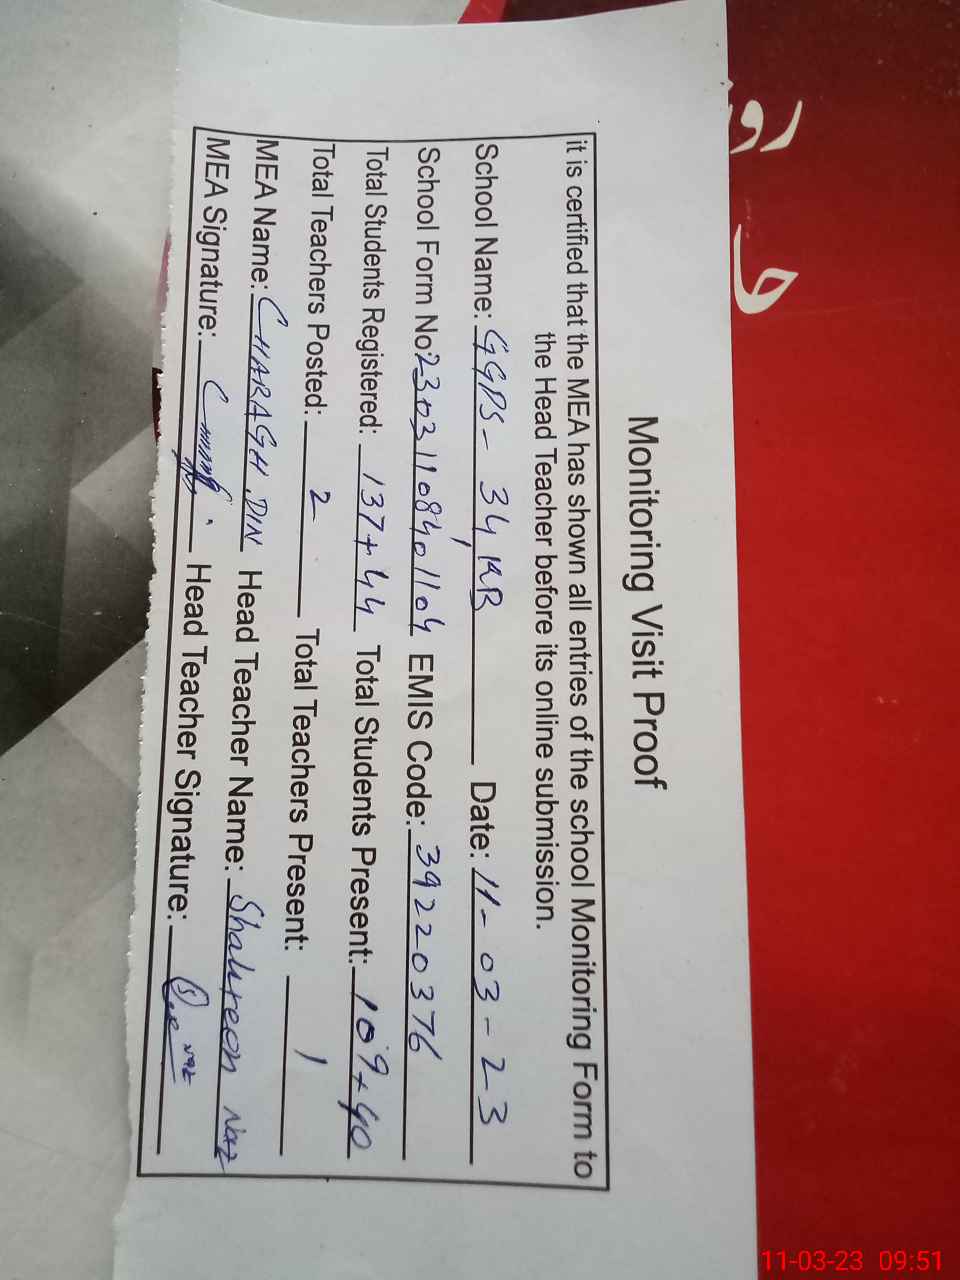 Monitoring Visit Proof
it is certified that the MEA has shown all entries of the school Monitoring Form to
the Head Teacher before its online submission.
School Name: GGPS- 34/KB Date: 11-03-23
School Form No: 23031108401104 EMIS Code: 39220376
Total Students Registered: 137+44 Total Students Present: 109+40
Total Teachers Posted: 2 Total Teachers Present: 1
MEA Name: CHARAGH.DIN Head Teacher Name: Shahreon Naz
MEA Signature: Head Teacher Signature: Naz
11-03-23 09:51